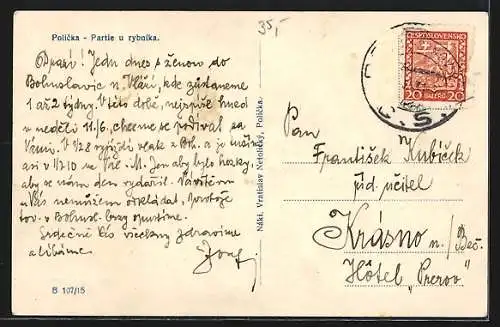 35,-
Polička - Partie u rybníka.
Drazí! Jedu dnes s ženou do
Bohuslavic n. Vláří, kde zůstaneme
1 až 2 týdny. V této době, nejspíše hned
v neděli 11./6., chceme se podívat za
Vámi. V 1/2 8 vyjíždí vlak z Boh. a je
asi v 1/2 10 na Val. M. Jen aby bylo hezky,
aby se nám den vydařil. Návštěvu
u Vás nemůžem odkládat,
v Bohusl. brzy opustíme.
Srdečně Vás všechny zdravíme
a líbáme.
Josef
B 107/15
Nákl. Vratislav Netolický, Polička.
ČESKOSLOVENSKO
20 HALÉŘŮ 20
Č.S.
Pan
František Kubíček
říd. učitel
Krásno n./Beč.
Hôtel „Prerov"